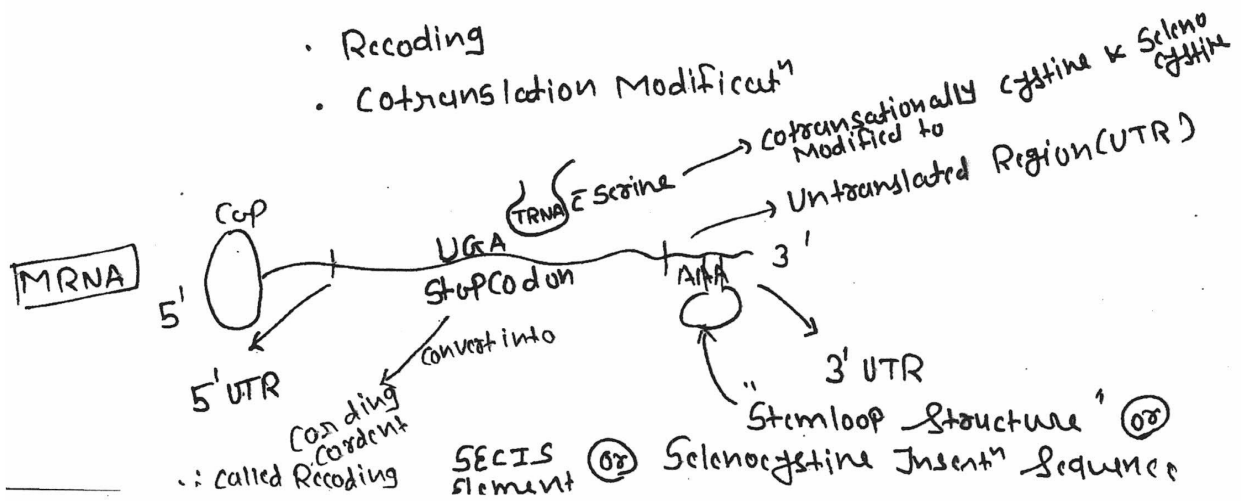 · Recoding
· Cotranslation Modificatⁿ
TRNA c̄ Serine → Cotransationally Cystine & Seleno Cystine
Modified to
Untranslated Region (UTR)
Cap
MRNA
5'
UGA
Stop Codon
AAA
3'
5' UTR
convert into
3' UTR
Conding
Cordent
∴ Called Recoding
"Stemloop Structure" or
SECIS element or Selenocystine Insertⁿ Sequence